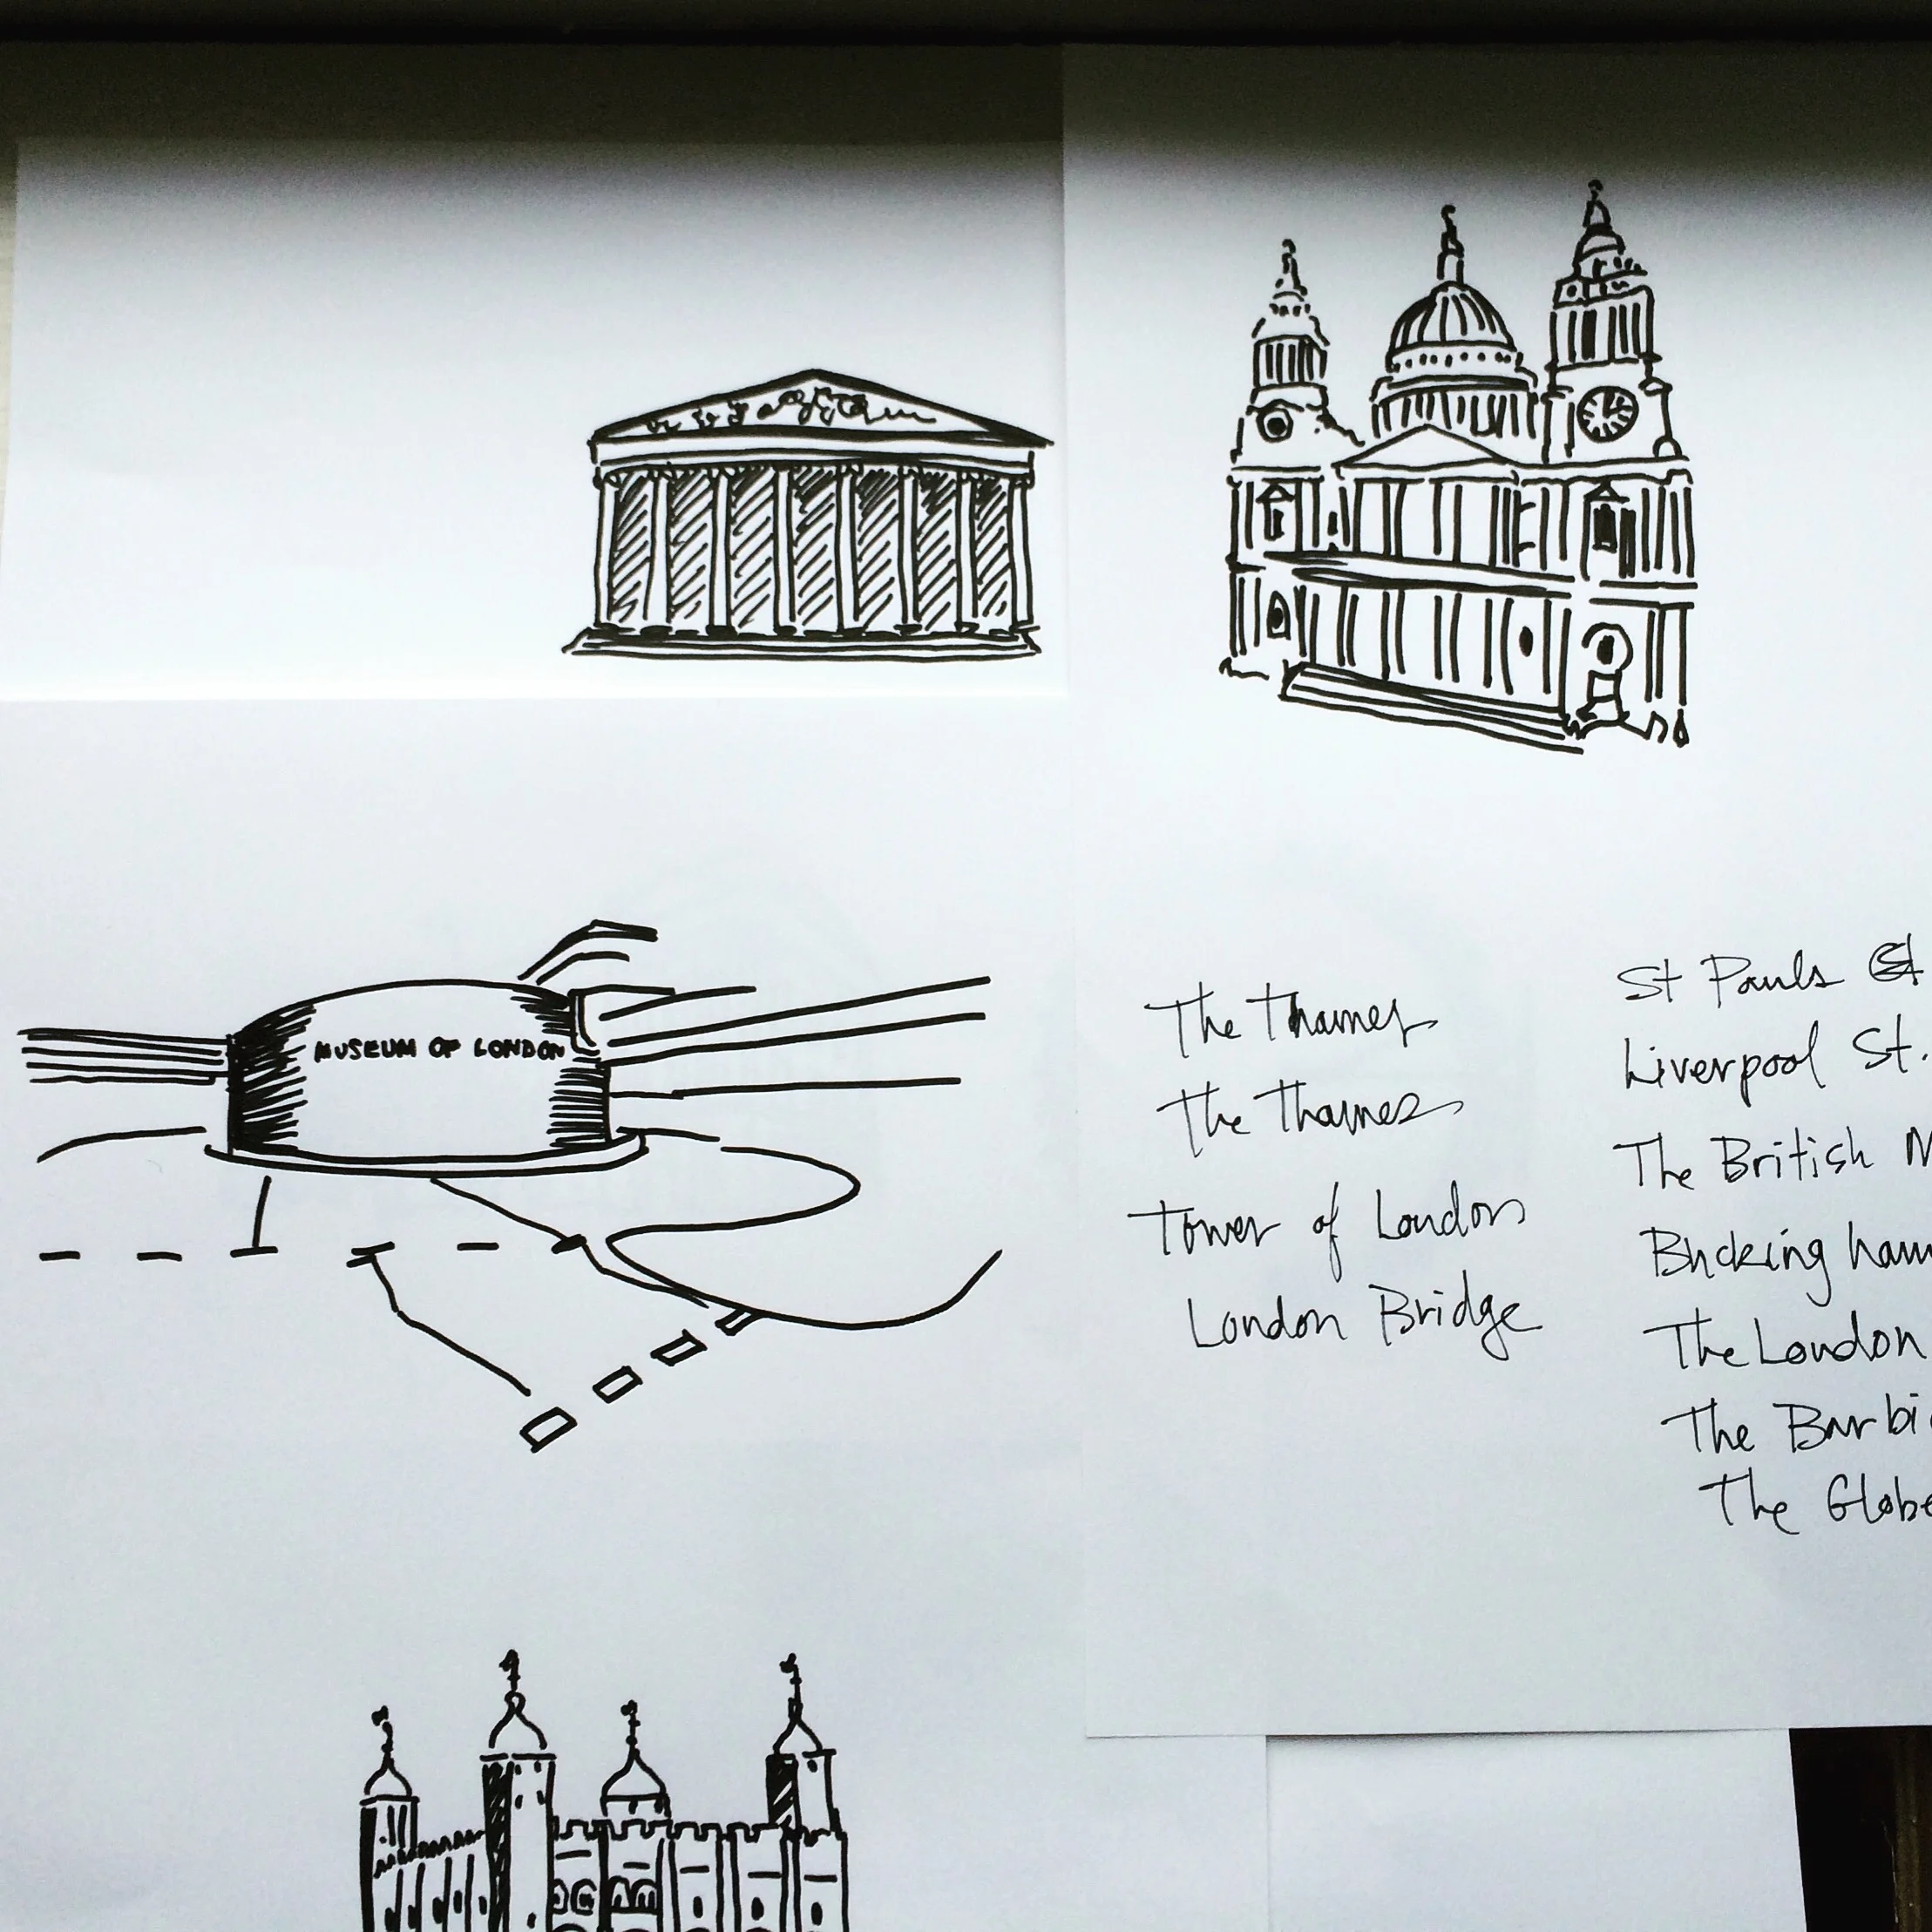 MUSEUM OF LONDON
The Thames
The Thames
Tower of London
London Bridge
St Pauls
Liverpool St.
The British M
Buckingham
The London
The Barbi
The Globe